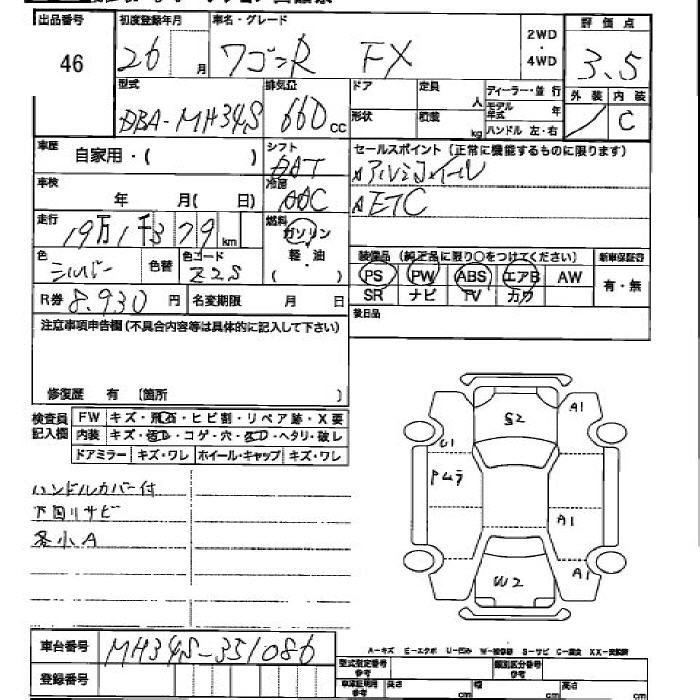 出品番号 初度登録年月 車名・グレード 2WD・4WD 評価点
46 26 月 ワゴンR FX 3.5
型式 排気量 ドア 定員 人 ディーラー・並行 外装 内装
DBA-MH34S 660cc 形状 積載 kg モデル年式 年 C
ハンドル 左・右
車歴 自家用・( ) シフト セールスポイント(正常に機能するものに限ります)
アルミホイール
車検 年 月( 日) 冷房 AAC ETC
走行 19万1千379km 燃料 ガソリン・軽油 ( )
装備品(純正品に限り○をつけてください) 新車保証書
色 シルバー 色替 色コード Z2S PS PW ABS エアB AW 有・無
SR ナビ TV カワ
R券 8.930円 名変期限 月 日 後日品
注意事項申告欄(不具合内容等は具体的に記入して下さい)
修復歴 有 (箇所 )
検査員記入欄 FW キズ・飛石・ヒビ割・リペア跡・X要
内装 キズ・ ・コゲ・穴・ ・ヘタリ・破レ
ドアミラー キズ・ワレ ホイール・キャップ キズ・ワレ
ハンドルカバー付
下回リサビ
各小A
S2
A1
U1
Pムラ
A1
A1
W2
A-キズ E-エクボ U-凹み W-補修跡 S-サビ C-腐食 XX-交換済
車台番号 MH34S-351086
登録番号
型式指定番号参考 類別区分番号参考
車庫証明用参考 長さ cm 幅 cm 高さ cm